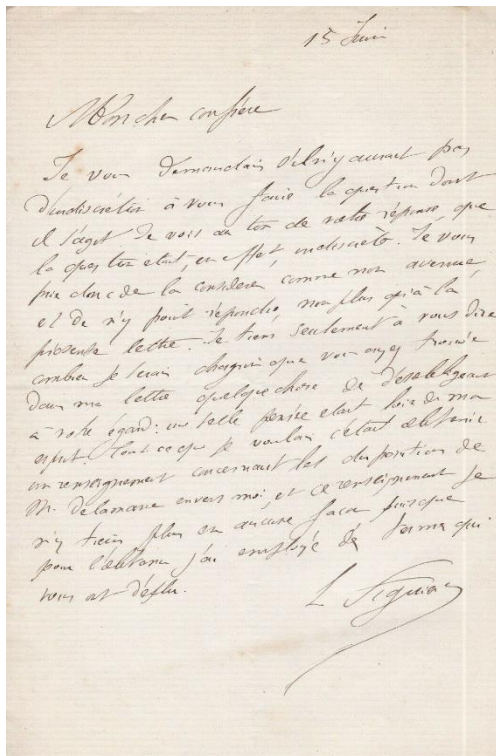 15 Juin
Mon cher confrère
Je vous demandais s'il n'y aurait pas
d'indiscrétion à vous faire la question dont
il s'agit. Je vois au ton de votre réponse, que
la question était, en effet, indiscrète. Je vous
prie donc de la considérer comme non avenue,
et de n'y point répondre, non plus qu'à la
présente lettre. Je tiens seulement à vous dire
combien je serais chagrin que vous ayez trouvé
dans ma lettre quelque chose de désobligeant
à votre égard: une telle pensée était loin de mon
esprit. Tout ce que je voulais c'était obtenir
un renseignement concernant les dispositions de
M. Delamarre envers moi, et ce renseignement je
n'y tiens plus en aucune façon puisque
pour l'obtenir j'ai employé des formes qui
vous ont déplu.
L